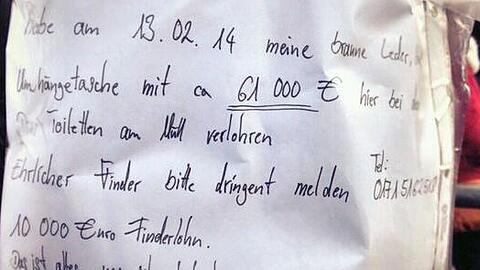 Habe am 13.02.14 meine braune Leder,
Umhängetasche mit ca 61 000 € hier bei
Den Toiletten am Müll verlohren
Ehrlicher Finder bitte dringent melden
Tel:
10 000 Euro Finderlohn.
Das ist alles